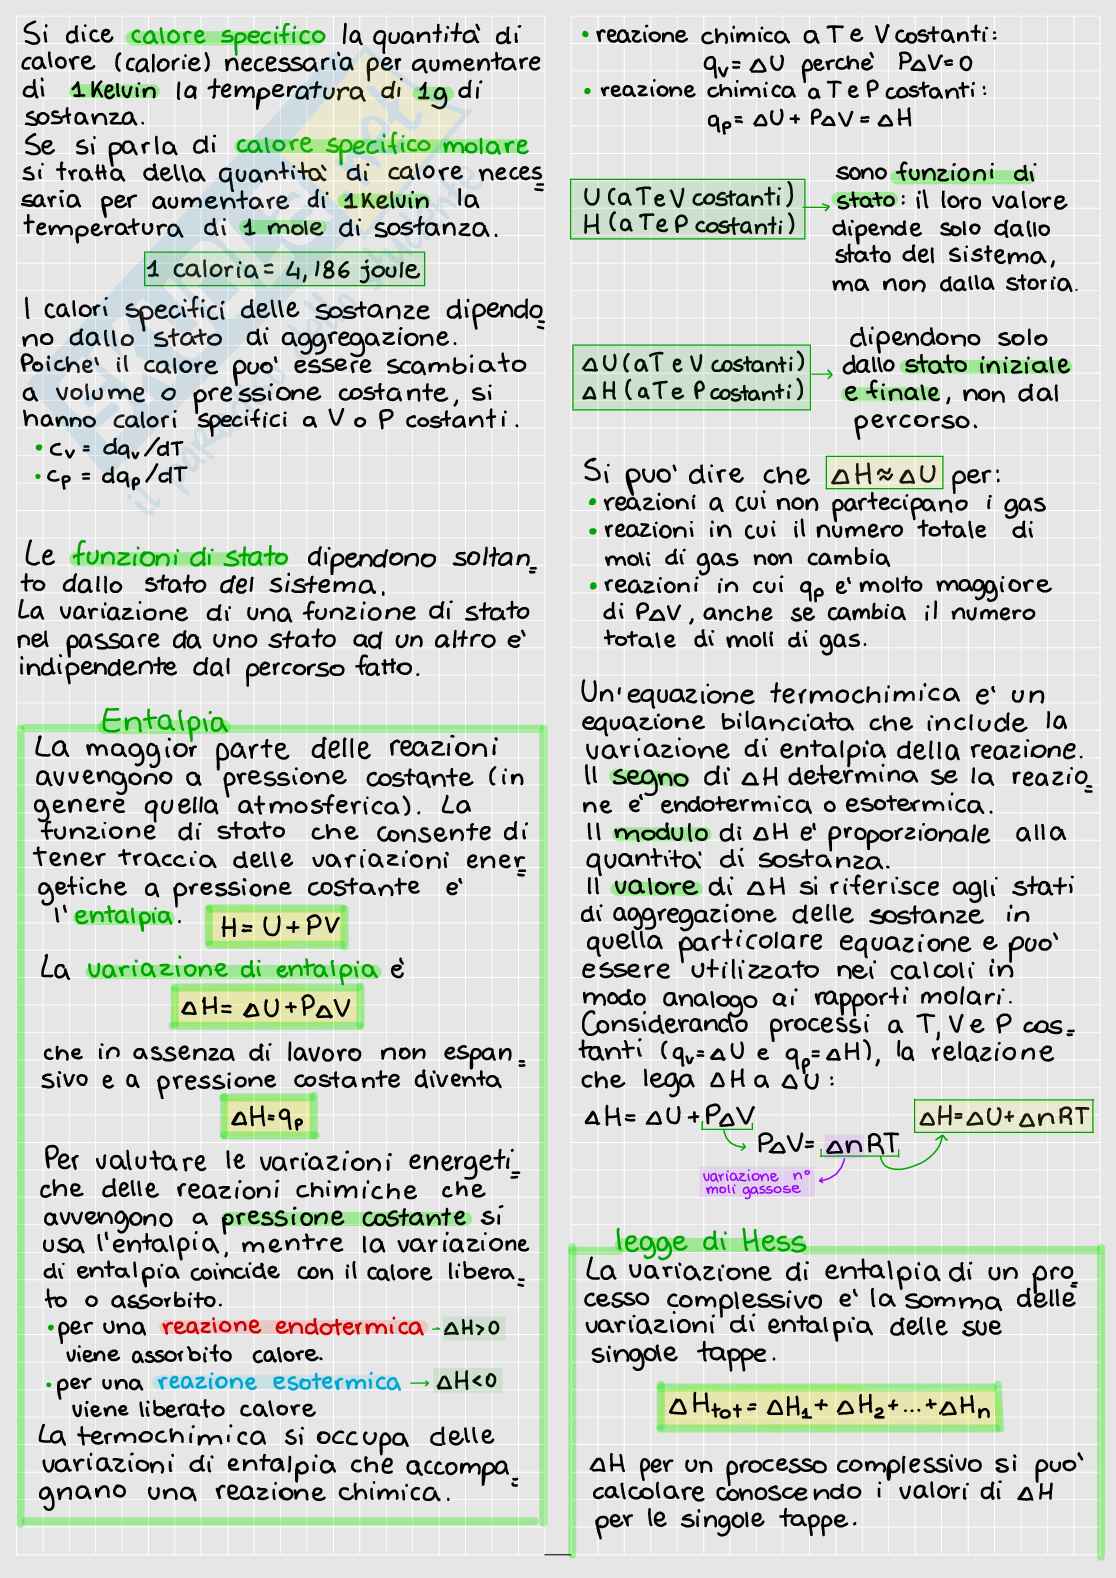 Si dice calore specifico la quantità di
calore (calorie) necessaria per aumentare
di 1 Kelvin la temperatura di 1g di
sostanza.
Se si parla di calore specifico molare
si tratta della quantità di calore neces=
saria per aumentare di 1 Kelvin la
temperatura di 1 mole di sostanza.
1 caloria = 4,186 joule
I calori specifici delle sostanze dipendo=
no dallo stato di aggregazione.
Poiché il calore può essere scambiato
a volume o pressione costante, si
hanno calori specifici a V o P costanti.
• cv = dqv/dT
• cp = dqp/dT
Le funzioni di stato dipendono soltan=
to dallo stato del sistema.
La variazione di una funzione di stato
nel passare da uno stato ad un altro è
indipendente dal percorso fatto.
Entalpia
La maggior parte delle reazioni
avvengono a pressione costante (in
genere quella atmosferica). La
funzione di stato che consente di
tener traccia delle variazioni ener=
getiche a pressione costante è
l'entalpia. H = U + PV
La variazione di entalpia è
ΔH = ΔU + PΔV
che in assenza di lavoro non espan=
sivo e a pressione costante diventa
ΔH = qp
Per valutare le variazioni energeti=
che delle reazioni chimiche che
avvengono a pressione costante si
usa l'entalpia, mentre la variazione
di entalpia coincide con il calore libera=
to o assorbito.
• per una reazione endotermica → ΔH>0
viene assorbito calore.
• per una reazione esotermica → ΔH<0
viene liberato calore
La termochimica si occupa delle
variazioni di entalpia che accompa=
gnano una reazione chimica.
• reazione chimica a T e V costanti:
qv = ΔU perché PΔV=0
• reazione chimica a T e P costanti:
qp = ΔU + PΔV = ΔH
U (a T e V costanti)
H (a T e P costanti)
→ sono funzioni di
stato: il loro valore
dipende solo dallo
stato del sistema,
ma non dalla storia.
ΔU (a T e V costanti)
ΔH (a T e P costanti)
→ dipendono solo
dallo stato iniziale
e finale, non dal
percorso.
Si può dire che ΔH≈ΔU per:
• reazioni a cui non partecipano i gas
• reazioni in cui il numero totale di
moli di gas non cambia
• reazioni in cui qp è molto maggiore
di PΔV, anche se cambia il numero
totale di moli di gas.
Un'equazione termochimica è un
equazione bilanciata che include la
variazione di entalpia della reazione.
Il segno di ΔH determina se la reazio=
ne è endotermica o esotermica.
Il modulo di ΔH è proporzionale alla
quantità di sostanza.
Il valore di ΔH si riferisce agli stati
di aggregazione delle sostanze in
quella particolare equazione e può
essere utilizzato nei calcoli in
modo analogo ai rapporti molari.
Considerando processi a T, V e P cos=
tanti (qv=ΔU e qp=ΔH), la relazione
che lega ΔH a ΔU:
ΔH = ΔU + PΔV
PΔV = ΔnRT
ΔH=ΔU+ΔnRT
variazione n°
moli gassose
legge di Hess
La variazione di entalpia di un pro=
cesso complessivo è la somma delle
variazioni di entalpia delle sue
singole tappe.
ΔHtot = ΔH1 + ΔH2 + ... + ΔHn
ΔH per un processo complessivo si può
calcolare conoscendo i valori di ΔH
per le singole tappe.